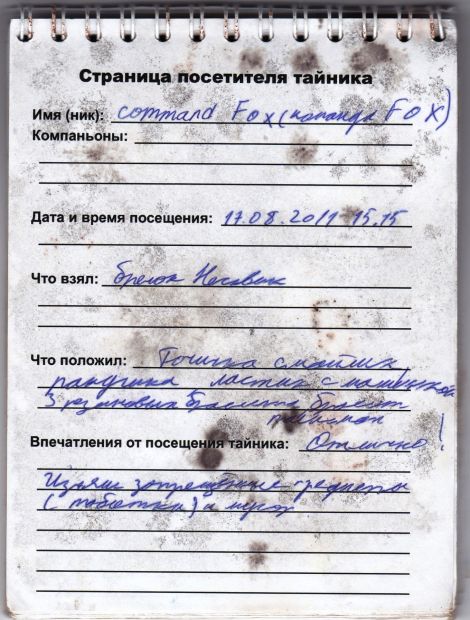 Страница посетителя тайника
Имя (ник): command Fox (команда FOX)
Компаньоны:
Дата и время посещения: 17.08.2011 15.15
Что взял: брелок
Что положил: Точилка
ластик с машинкой
3 резиновых браслета
Впечатления от посещения тайника: Отлично!
Изъяли запрещённые предметы
(таблетки) и